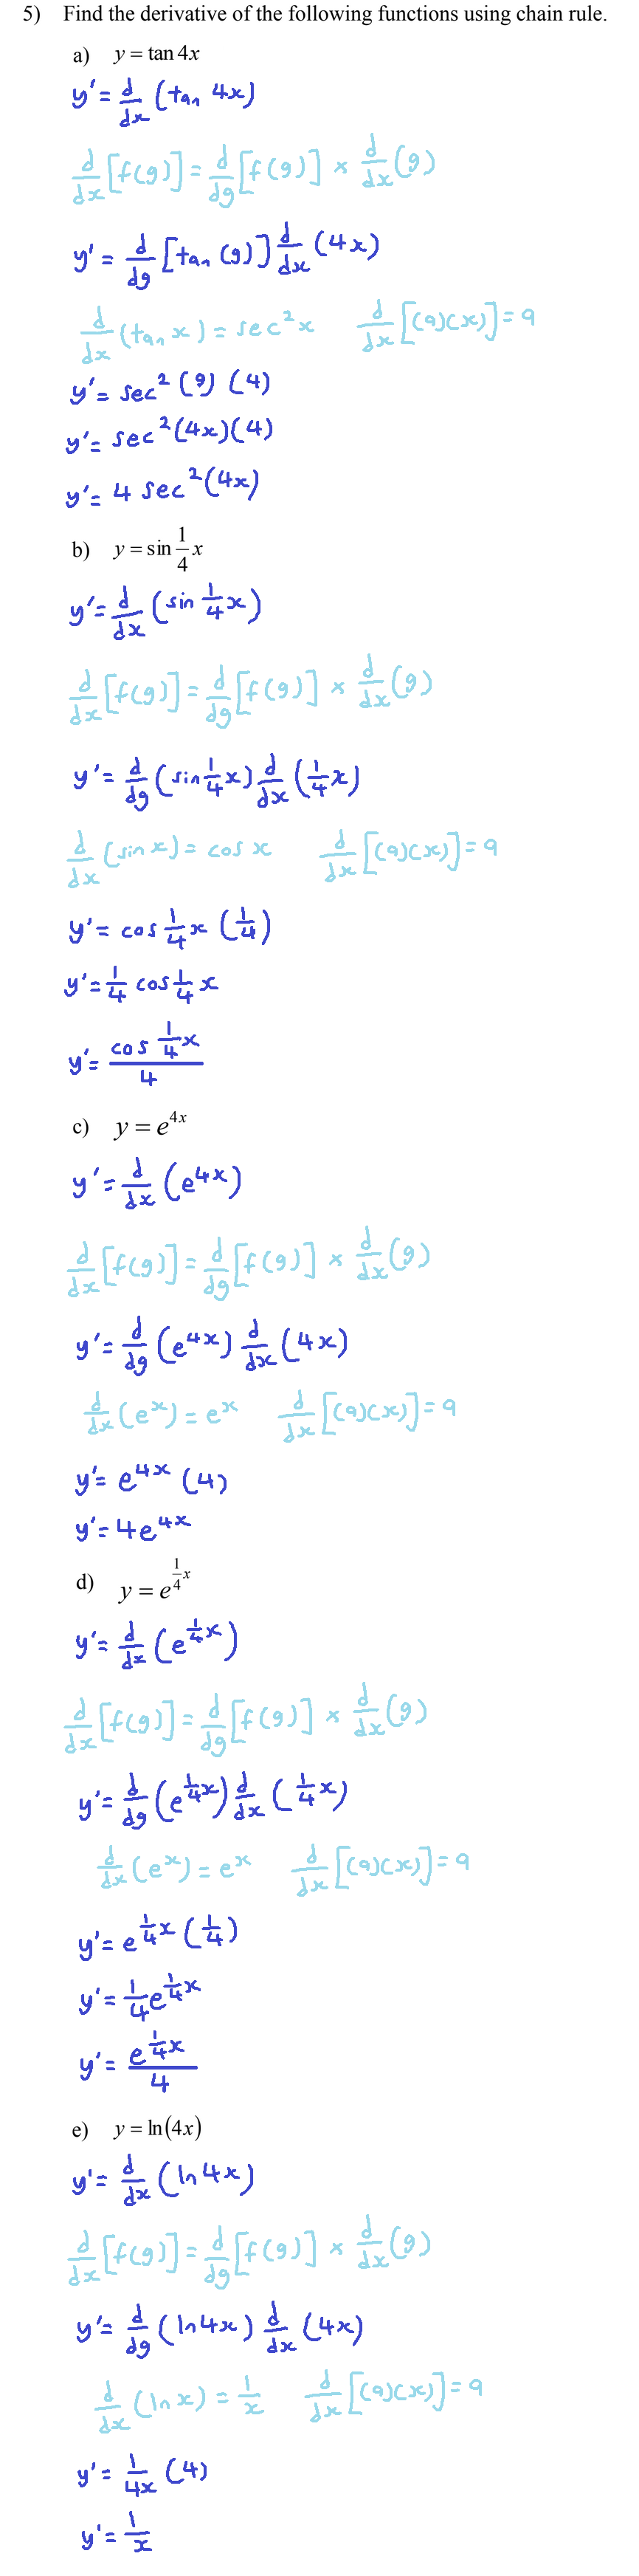 5) Find the derivative of the following functions using chain rule.
a) y = tan 4x
y' = d/dx (tan 4x)
d/dx [f(g)] = d/dg [f(g)] × d/dx (g)
y' = d/dg [tan (g)] d/dx (4x)
d/dx (tan x) = sec²x d/dx [(a)(x)] = a
y' = sec² (g) (4)
y' = sec² (4x)(4)
y' = 4 sec² (4x)
b) y = sin 1/4 x
y' = d/dx (sin 1/4 x)
d/dx [f(g)] = d/dg [f(g)] × d/dx (g)
y' = d/dg (sin 1/4 x) d/dx (1/4 x)
d/dx (sin x) = cos x d/dx [(a)(x)] = a
y' = cos 1/4 x (1/4)
y' = 1/4 cos 1/4 x
y' = (cos 1/4 x)/4
c) y = e^(4x)
y' = d/dx (e^(4x))
d/dx [f(g)] = d/dg [f(g)] × d/dx (g)
y' = d/dg (e^(4x)) d/dx (4x)
d/dx (e^x) = e^x d/dx [(a)(x)] = a
y' = e^(4x) (4)
y' = 4e^(4x)
d) y = e^(1/4 x)
y' = d/dx (e^(1/4 x))
d/dx [f(g)] = d/dg [f(g)] × d/dx (g)
y' = d/dg (e^(1/4 x)) d/dx (1/4 x)
d/dx (e^x) = e^x d/dx [(a)(x)] = a
y' = e^(1/4 x) (1/4)
y' = 1/4 e^(1/4 x)
y' = e^(1/4 x)/4
e) y = ln(4x)
y' = d/dx (ln 4x)
d/dx [f(g)] = d/dg [f(g)] × d/dx (g)
y' = d/dg (ln 4x) d/dx (4x)
d/dx (ln x) = 1/x d/dx [(a)(x)] = a
y' = 1/4x (4)
y' = 1/x